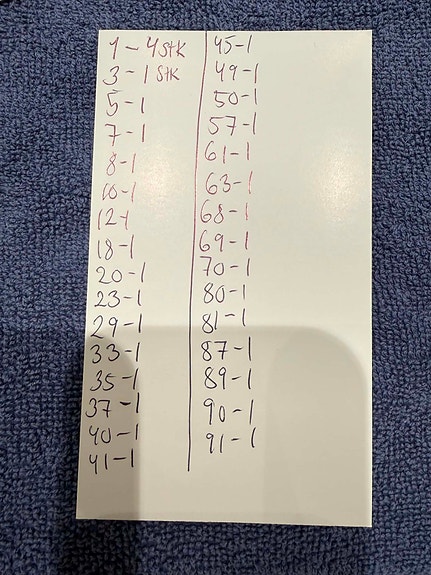 1 - 4 stk
3 - 1 stk
5 - 1
7 - 1
8 - 1
10 - 1
12 - 1
18 - 1
20 - 1
23 - 1
29 - 1
33 - 1
35 - 1
37 - 1
40 - 1
41 - 1
45 - 1
49 - 1
50 - 1
57 - 1
61 - 1
63 - 1
68 - 1
69 - 1
70 - 1
80 - 1
81 - 1
87 - 1
89 - 1
90 - 1
91 - 1